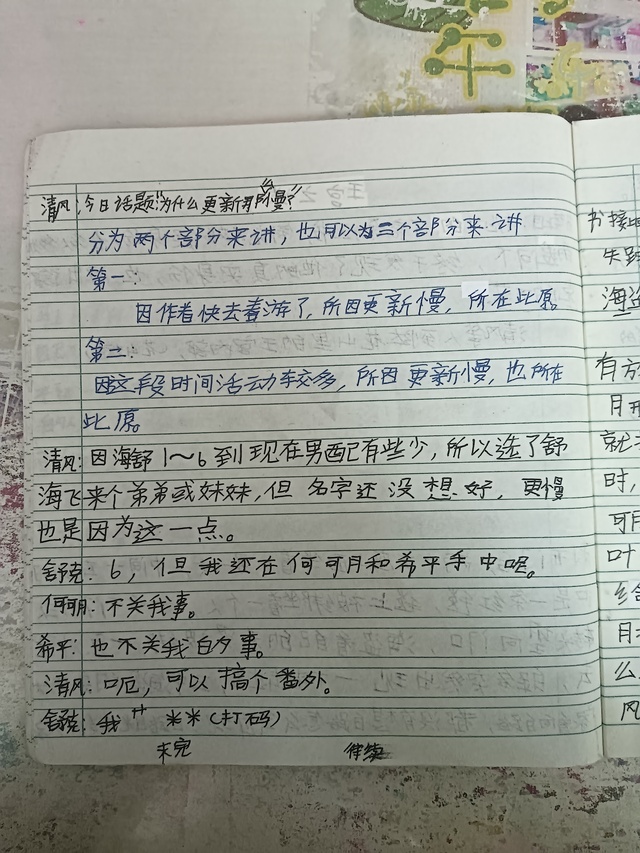 清风：今日话题"为什么更新那么慢？"
分为两个部分来讲，也可以为三个部分来讲
第一：
因作者快去春游了，所因更新慢，所在此原。
第二：
因这段时间活动较多，所因更新慢，也所在
此原。
清风：因海舒1～6到现在男配有些少，所以选了舒
海飞来个弟弟或妹妹，但名字还没想好，更慢
也是因为这一点。
舒克：6，但我还在何可月和希平手中呢。
何可月：不关我事。
希平：也不关我的事。
清风：口呃，可以搞个番外。
舒克：我艹 **(打码)
未完 待续
书接
失踪
海边
有方
月形
就
时，
可月
叶
乡
月
么
风